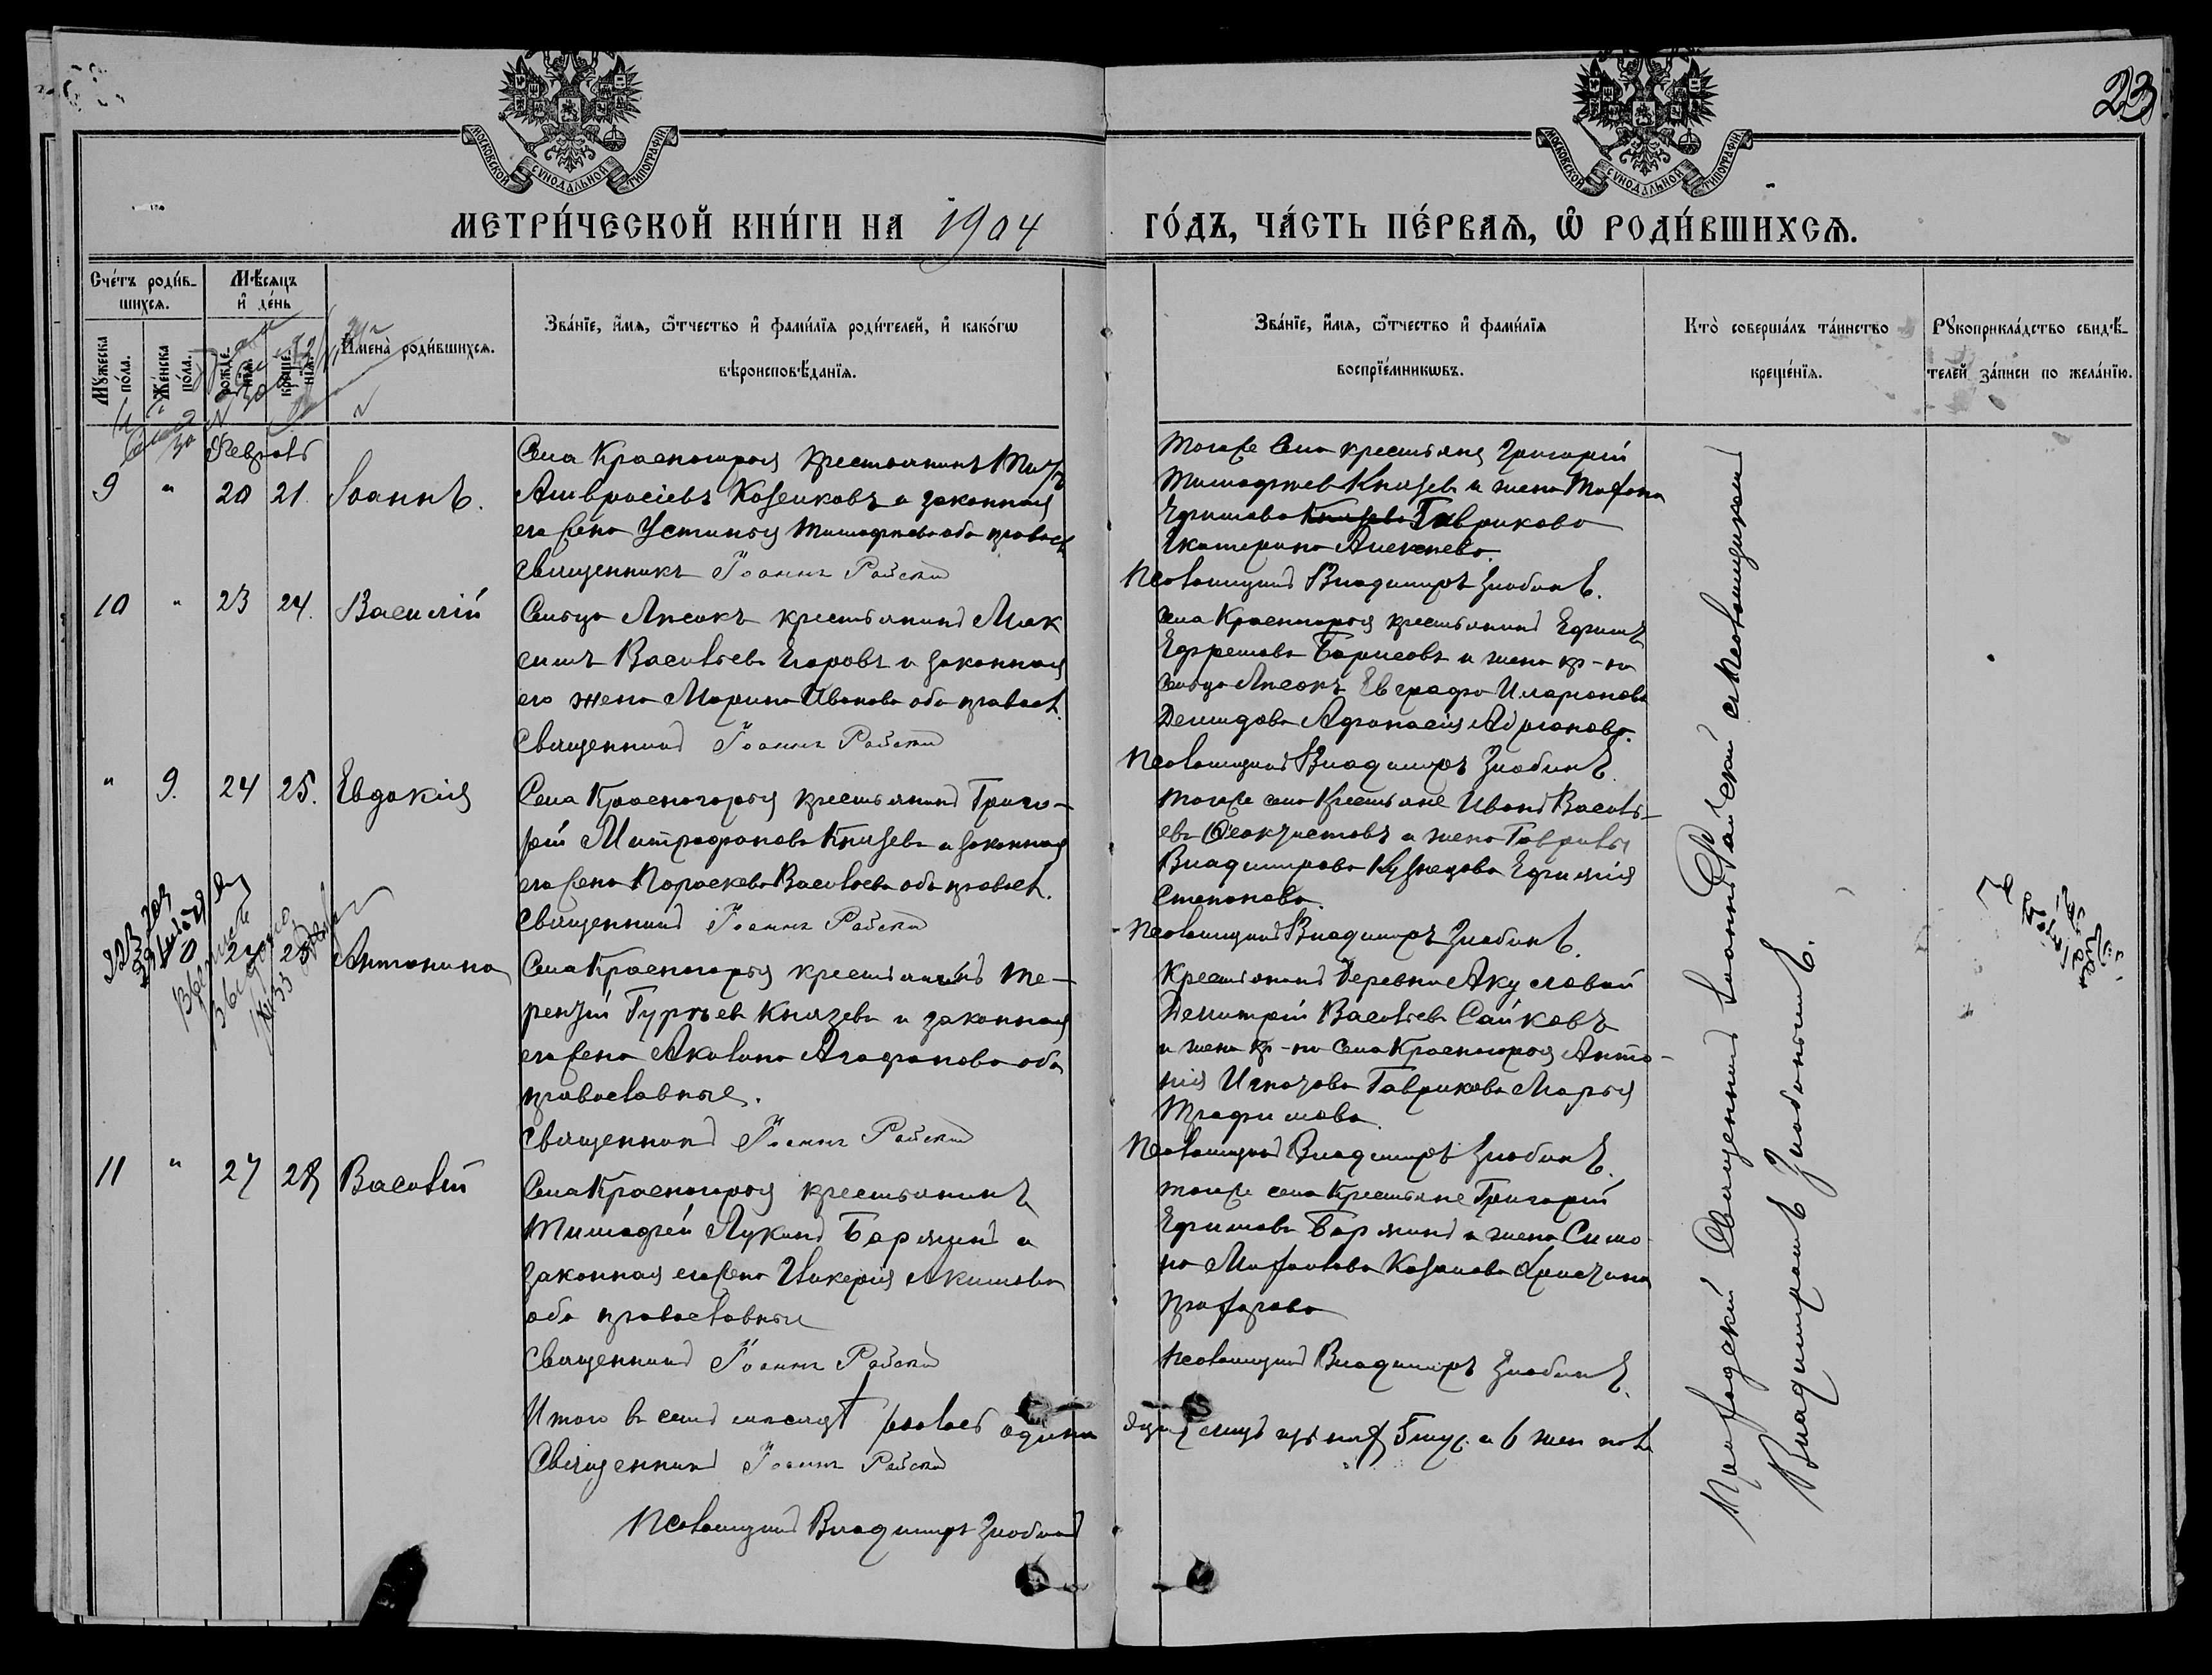 23
МОСКОВСКОЙ СѴНОДАЛЬНОЙ ТИПОГРАФІИ
МОСКОВСКОЙ СѴНОДАЛЬНОЙ ТИПОГРАФІИ
МЕТРИ́ЧЕСКОЙ КНИ́ГИ НА 1904
ГО́ДЪ, ЧА́СТЬ ПЕ́РВАѦ, Ѽ РОДИ́ВШИХСѦ.
Сче́тъ роди́в-
шихсѧ.
Мѣ́сѧцъ
и҆ де́нь
Мꙋ́жеска по́ла.
Же́нска по́ла.
рожде́-нїѧ.
креще́-нїѧ.
И҆мена̀ роди́вшихсѧ.
Зва́нїе, и҆́мѧ, ѻ҆́тчество и҆ фами́лїѧ роди́телей, и҆ како́гѡ
вѣроисповѣ́данїѧ.
Зва́нїе, и҆́мѧ, ѻ҆́тчество и҆ фами́лїѧ
воспрїе́мникѡвъ.
Кто̀ соверша́лъ та́инство
креще́нїѧ.
Рꙋкоприкла́дство свидѣ́-
телей за́писи по жела́нїю.
Февраль
9 " 20 21. Іоаннъ.
Села Красногорья крестьянинъ
Амвросіевъ Козликовъ и законная
его жена Устинья Тимофеева оба правосл
Священникъ Іоаннъ Райскій
тогоже села крестьяне Григорій
Тимофеев Князев и жена
Ефимова Князева Гаврикова
Екатерина Алексеева.
Псаломщикъ Владиміръ Злобинъ.
10 " 23 24. Василій
Сельцо Лясокъ крестьянинъ Мак
симъ Васильевъ Егоровъ и законная
его жена Марина Иванова оба правосл.
Священникъ Іоаннъ Райскій
села Красногорья крестьянинъ Ефимъ
Ефремовъ Борисовъ и жена кр-на
сельца Лясокъ Евграфа Иларіонова
Демидова Афанасія Адріанова.
Псаломщикъ Владиміръ Злобинъ.
" 9. 24 25. Евдокія
Села Красногорья крестьянинъ Григо-
рій Митрофановъ Князевъ и законная
его жена Параскева Васильева оба правосл.
Священникъ Іоаннъ Райскій
тогоже села Крестьяне Иванъ Василь-
евъ Феоктистовъ и жена Гавриилы
Владимірова Кузнецова Ефимія
Степанова.
Псаломщикъ Владиміръ Злобинъ.
10 24 25 Антонина
Села Красногорья крестьянинъ Те-
рентій Гурьевъ Князевъ и законная
его жена Акилина Агафонова оба
православные.
Священникъ Іоаннъ Райскій
Крестьянинъ деревни Акуловой
Димитрій Васильевъ Сайковъ
и жена кр-на села Красногорья Анто-
нія Игнатова Гаврикова Марья
Трофимова.
Псаломщикъ Владиміръ Злобинъ.
11 " 27 28 Василій
Села Красногорья крестьянинъ
Тимофей Лукинъ Барминъ и
законная его жена Гликерія Акимова
оба православные
Священникъ Іоаннъ Райскій
тогоже села Крестьяне Григорій
Ефимовъ Барминъ и жена Симо-
на Михаилова Козликова Христина
Псаломщикъ Владиміръ Злобинъ.
Итого въ семъ месяцѣ родилось одина
дцать лицъ изъ нихъ 5 муж. и 6 жен пола
Священникъ Іоаннъ Райскій
Псаломщикъ Владиміръ Злобинъ
Приходскій Священникъ Іоаннъ Райскій с псаломщикомъ
Владиміромъ Злобинымъ.